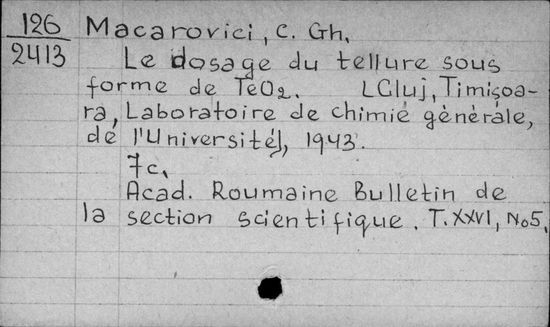 126 Macarovici, C. Gh.
2413 Le dosage du tellure sous
forme de TeO2. [Cluj, Timişoa-
ra, Laboratoire de chimie gènèrale,
de l'Université], 1943.
7c.
Acad. Roumaine Bulletin de
la section scientifique. T. XXVI, No5,